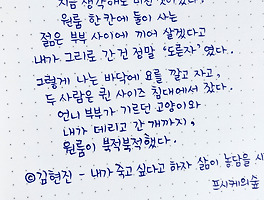 지금 생각해도 미친 짓이었다.
원룸 한 칸에 둘이 사는
젊은 부부 사이에 끼어 살겠다고
내가 그리로 간 건 정말 '도른자' 였다.
그렇게 나는 바닥에 요를 깔고 자고,
두 사람은 퀸 사이즈 침대에서 잤다.
언니 부부가 기르던 고양이와
내가 데리고 간 개까지,
원룸이 북적북적했다.
©김현진 - 내가 죽고 싶다고 하자 삶이 농담을 시
프시케의숲